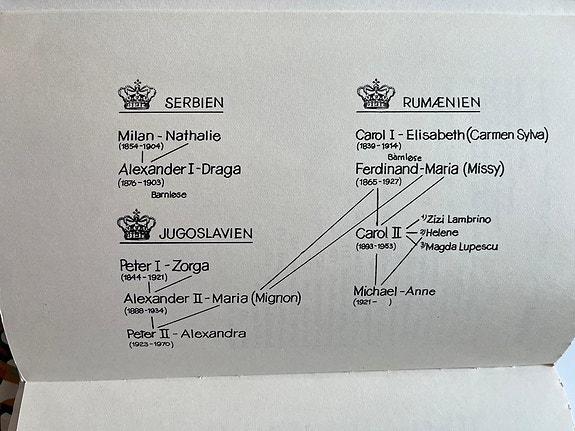 SERBIEN
Milan - Nathalie
(1854-1904)
Alexander I - Draga
(1876-1903)
Barnløse
JUGOSLAVIEN
Peter I - Zorga
(1844-1921)
Alexander II - Maria (Mignon)
(1888-1934)
Peter II - Alexandra
(1923-1970)
RUMÆNIEN
Carol I - Elisabeth (Carmen Sylva)
(1839-1914)
Barnløse
Ferdinand - Maria (Missy)
(1865-1927)
1) Zizi Lambrino
Carol II - 2) Helene
(1893-1953)
3) Magda Lupescu
Michael - Anne
(1921- )